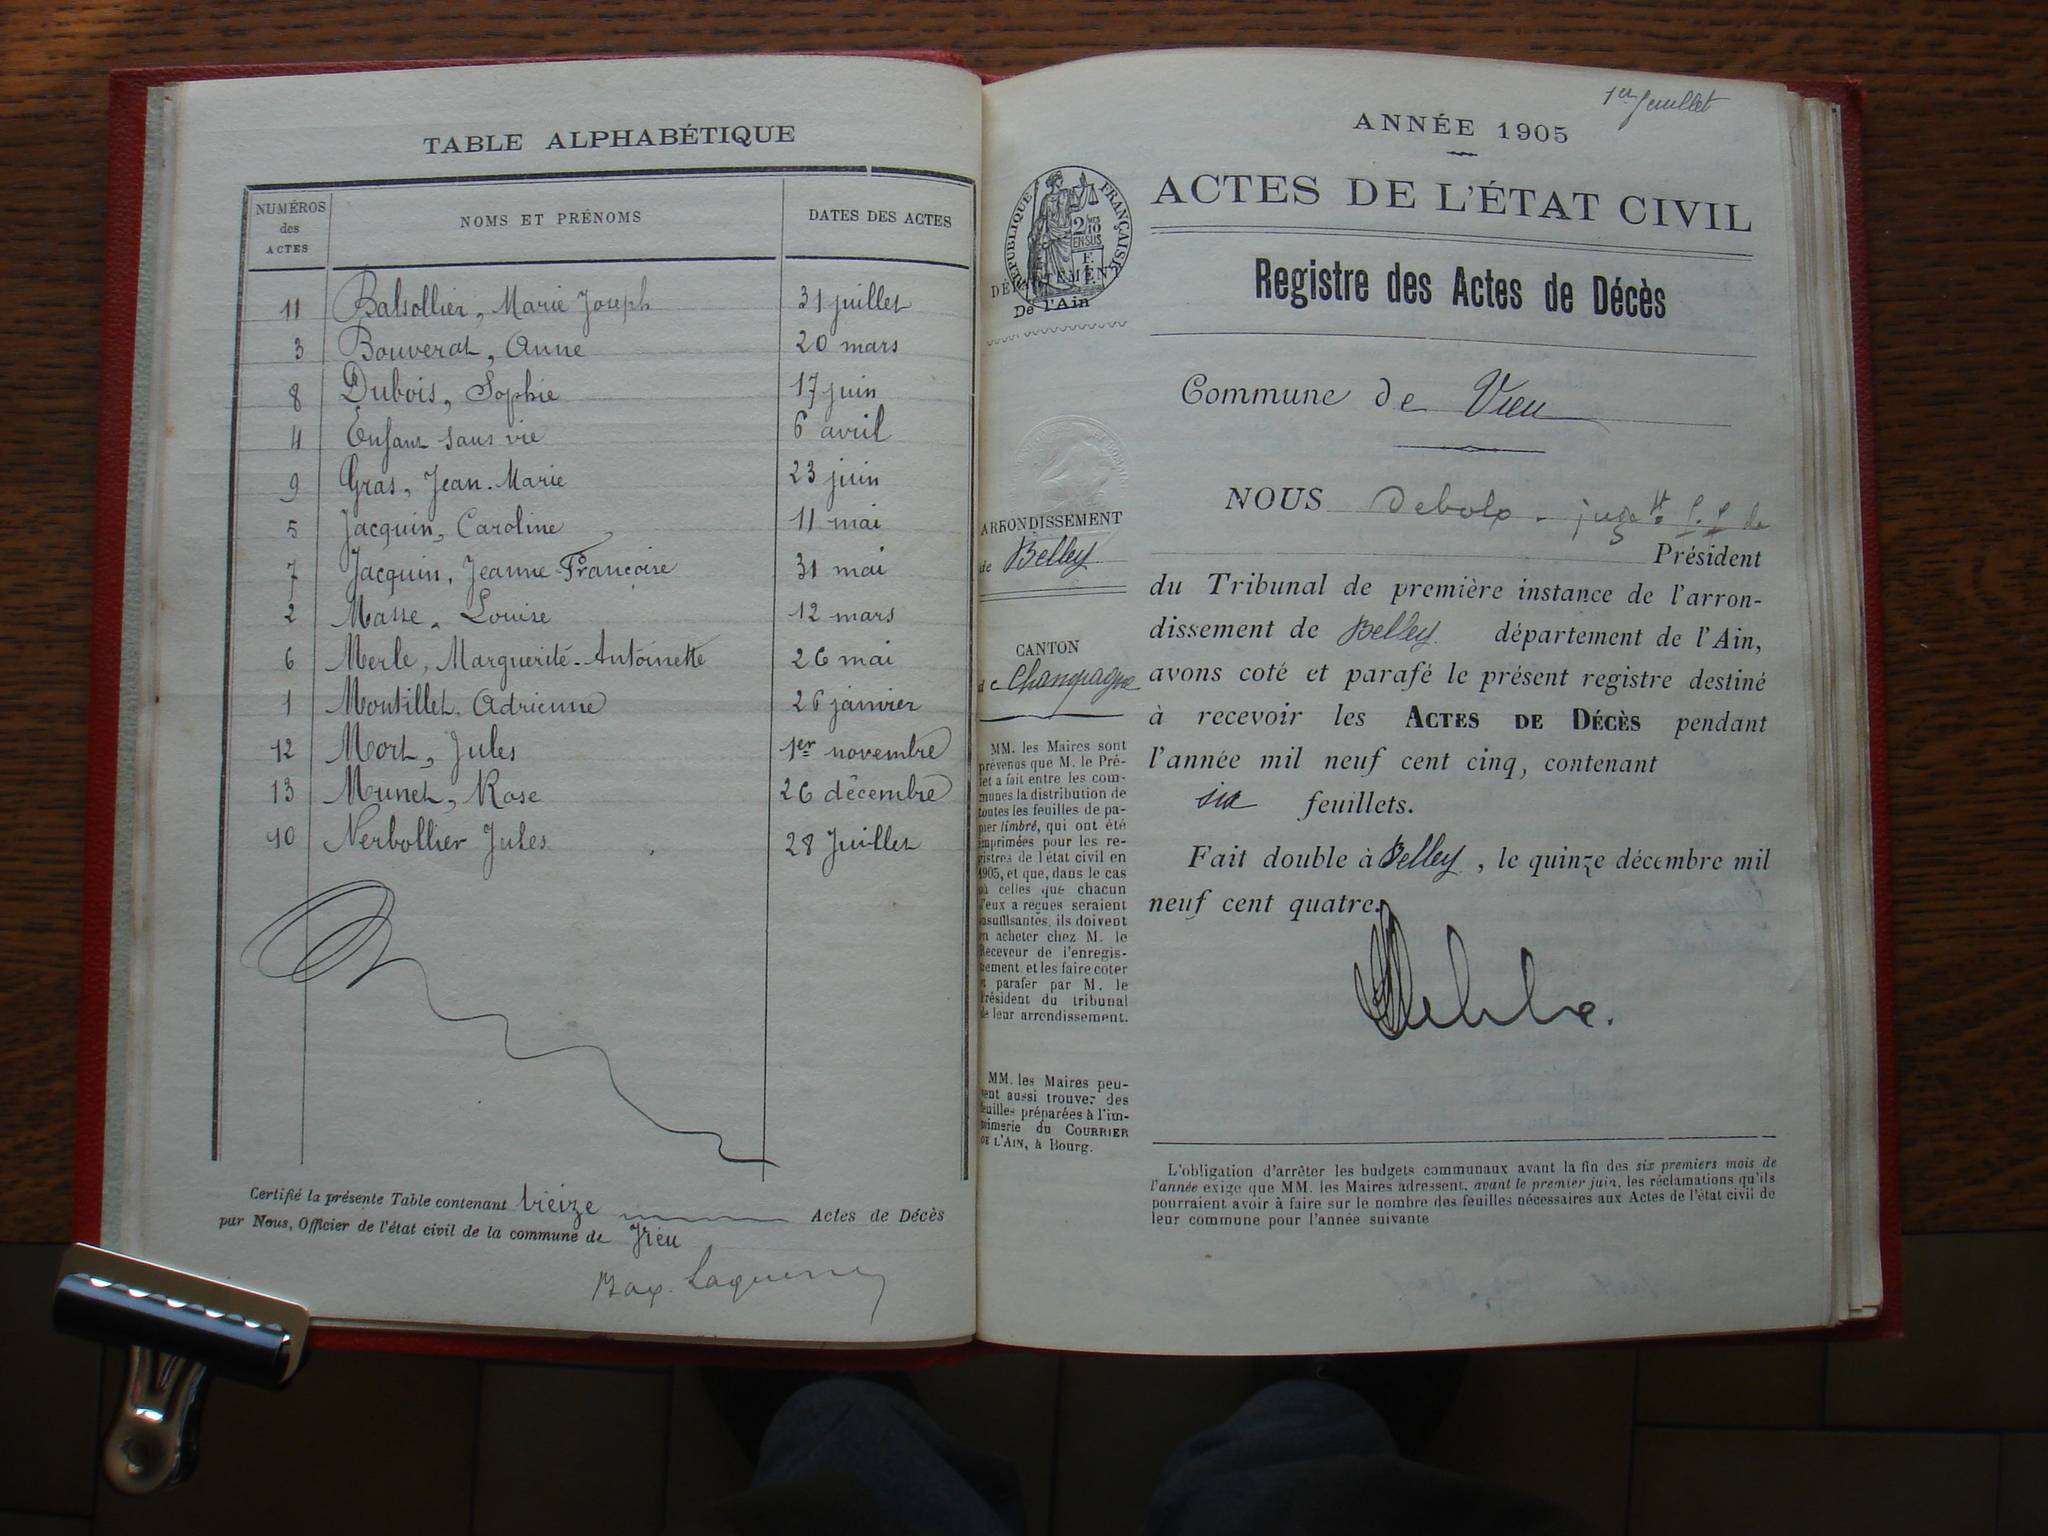 TABLE ALPHABÉTIQUE
NUMÉROS des ACTES NOMS ET PRÉNOMS DATES DES ACTES
11 Balsollier, Marie Joseph 31 juillet
3 Bouverat, Anne 20 mars
8 Dubois, Sophie 17 juin
4 Enfant sans vie 6 avril
9 Gras, Jean-Marie 23 juin
5 Jacquin, Caroline 11 mai
7 Jacquin, Jeanne Françoise 31 mai
2 Masse, Louise 12 mars
6 Merle, Marguerite-Antoinette 26 mai
1 Montillet, Adrienne 26 janvier
12 Mort, Jules 1er novembre
13 Munet, Rose 26 décembre
10 Nerbollier Jules 28 Juillet
Certifié la présente Table contenant treize Actes de Décès
par Nous, Officier de l'état civil de la commune de Vieu
1er feuillet
ANNÉE 1905
RÉPUBLIQUE FRANÇAISE
2/10 EN SUS
DÉPARTEMENT
De l'Ain
ACTES DE L'ÉTAT CIVIL
Registre des Actes de Décès
Commune de Vieu
ARRONDISSEMENT
de Belley
CANTON
de Champagne
MM. les Maires sont
prévenus que M. le Pré-
fet a fait entre les com-
munes la distribution de
toutes les feuilles de pa-
pier timbré, qui ont été
imprimées pour les re-
gistres de l'état civil en
1905, et que, dans le cas
où celles que chacun
d'eux a reçues seraient
insuffisantes, ils doivent
en acheter chez M. le
Receveur de l'enregis-
trement et les faire coter
et parafer par M. le
Président du tribunal
de leur arrondissement.
MM. les Maires peu-
vent aussi trouver des
feuilles préparées à l'im-
primerie du COURRIER
DE L'AIN, à Bourg.
NOUS juge
Président
du Tribunal de première instance de l'arron-
dissement de Belley département de l'Ain,
avons coté et parafé le présent registre destiné
à recevoir les ACTES DE DÉCÈS pendant
l'année mil neuf cent cinq, contenant
six feuillets.
Fait double à Belley, le quinze décembre mil
neuf cent quatre.
L'obligation d'arrêter les budgets communaux avant la fin des six premiers mois de
l'année exige que MM. les Maires adressent, avant le premier juin, les réclamations qu'ils
pourraient avoir à faire sur le nombre des feuilles nécessaires aux Actes de l'état civil de
leur commune pour l'année suivante